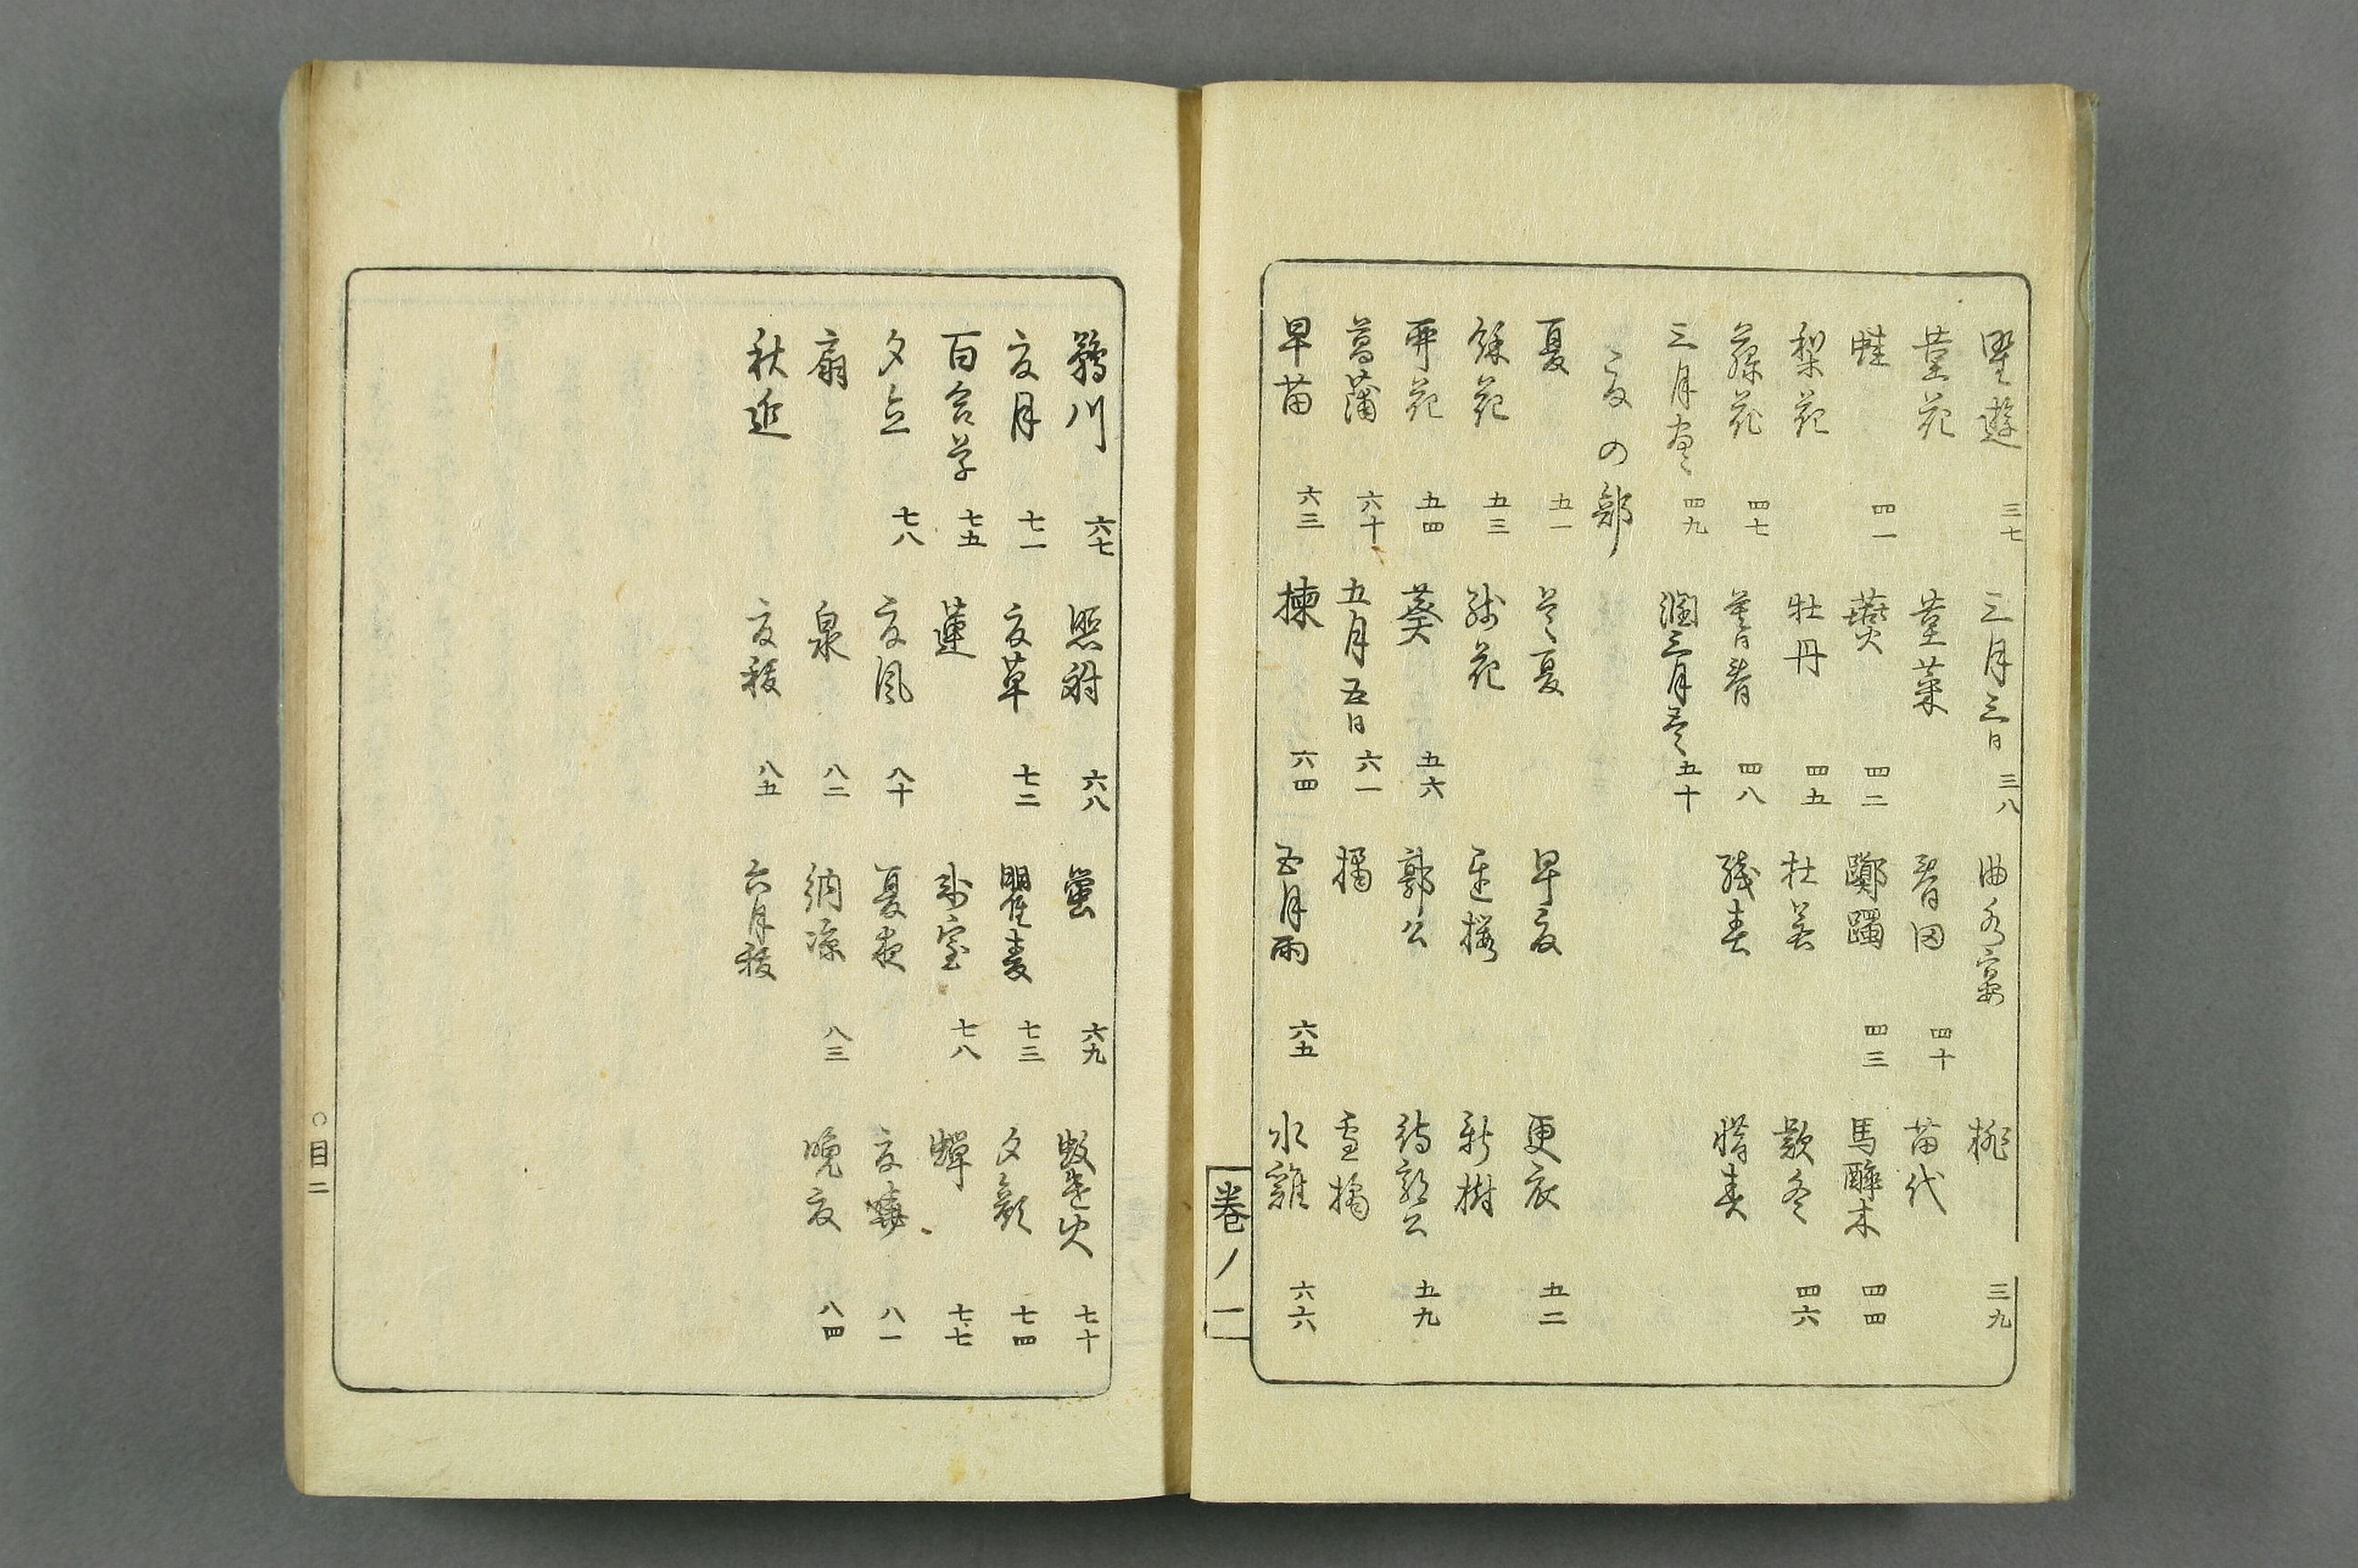 野遊 三七 三月三日 三八 曲水宴 桃 三九
菫花 菫菜 春田 四十 苗代
蛙 四一 燕 四二 躑躅 四三 馬醉木 四四
梨花 牡丹 四五 杜若 款冬 四六
藤花 四七 暮春 四八 残春 惜春
三月尽 四九 潤三月尽 五十
夏の部
夏 五一 首夏 早夏 更衣 五二
餘花 五三 残花 遅桜 新樹
卯花 五四 葵 五六 郭公 待郭公 五九
菖蒲 六十 五月五日 六一 橘 盧橘
早苗 六三 楝 六四 五月雨 六五 水雞 六六
巻ノ一
鵜川 六七 照射 六八 螢 六九 蚊遣火 七十
夏月 七一 夏草 七二 瞿麦 七三 夕顔 七四
百合草 七五 蓮 氷室 七八 蟬 七七
夕立 七八 夏風 八十 夏夜 夏暁 八一
扇 泉 八二 納涼 八三 晩夏 八四
秋近 夏祓 八五 六月祓
○目二